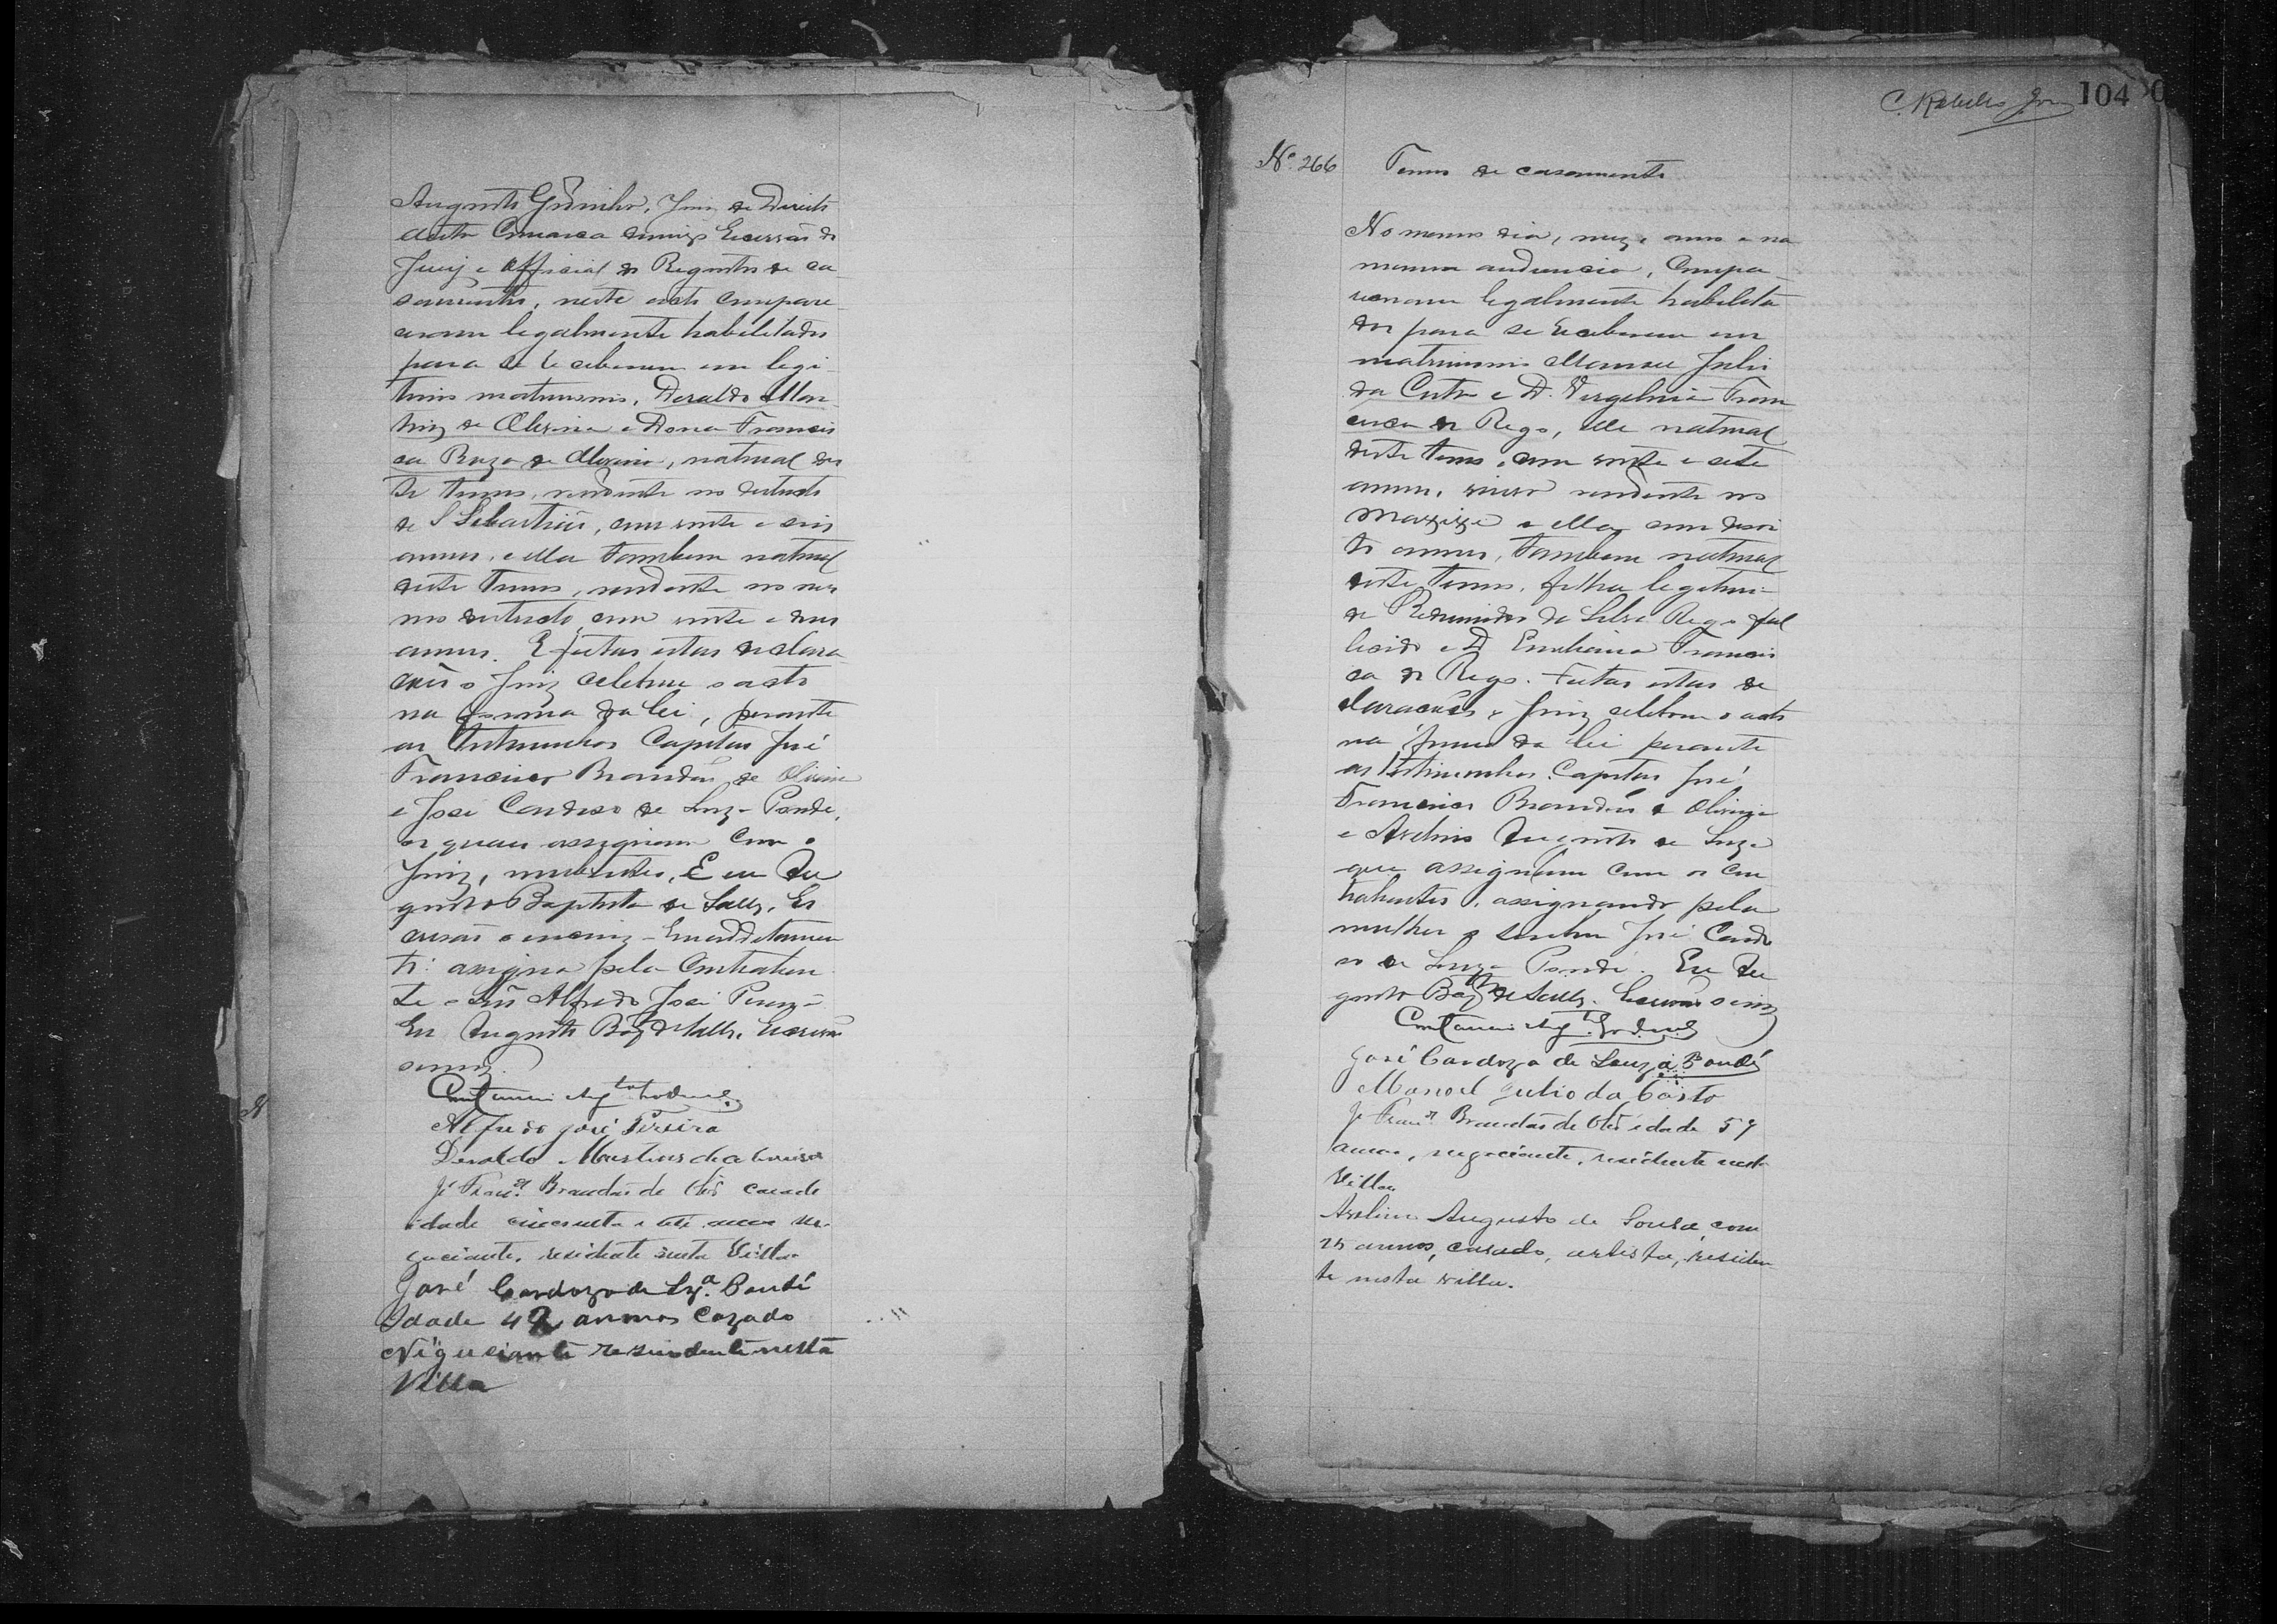 Augusto Godinho, Juiz de Direito
desta Comarca comigo Escrivão do
Jury e Official do Registro de ca
samentos, neste acto compare
ceram legalmente habilitados
para se receberem em legi
timo matrimonio, Deraldo Mar
tins de Oliveira e Dona Francis
ca Roza de Oliveira, natural des
te Termo, residente no districto
de S Sebastião, com vinte e seis
annos, e ella tambem natural
deste Termo, residente no mes
mo districto, com vinte e dois
annos. E feitas estas declara
ções o Juiz celebrou o acto
na forma da lei, perante
as testemunhas Capitão José
Francisco Brandão de Oliveira
e José Cardoso de Souza Pondé,
os quaes assignam com o
Juiz, nubentes, E eu Au
gusto Baptista de Salles, Es
crivão o escrevi
assigna pela Contrahen
te o Snr Alfredo José Pereira
Eu Augusto Bapta de Salles, Escrivão
o escrevi.
Alfredo José Pereira
Deraldo Martins de Oliveira
Je Franco Brandão de Olivª casado
idade cincoenta e annos ne-
gociante, residente nesta Villa
José Cardozo de Sza. Pondé
Idade 42 annos Cazado
Niguciante resindente nesta
Villa
104
No. 266
Termo de casamento
No mesmo dia, mez, anno e na
mesma audiencia, Compa
receram legalmente habilita
dos para se receberem em
matrimonio Manoel Julio
da Costa e D. Virgelinia Fran
cisca do Rego, elle natural
deste termo, com vinte e sete
annos, viuvo residente no
e ella com desoi
to annos, tambem natural
deste Termo, filha legitima
de Redusindo da Silva Rego fal
lecido e D Emiliana Francis
ca do Rego. Feitas estas de
clarações o Juiz celebrou o acto
na forma da lei perante
as testemunhas Capitão José
Francisco Brandão de Oliveira
e Avelino Augusto de Souza
que assignam com os con
trahentes, assignando pela
mulher o Senhor José Cardo
so de Souza Pondé. Eu Au
gusto Bapta de Salles. Escrivão o escrevi
José Cardozo de Souza Pondé
Manoel Julio da Costa
Je Franco Brandão de Olivª idade 59
annos, negociante, residente nesta
Villa.
Avelino Augusto de Sousa, com
25 annos, casado, artista, residen
te nesta villa.